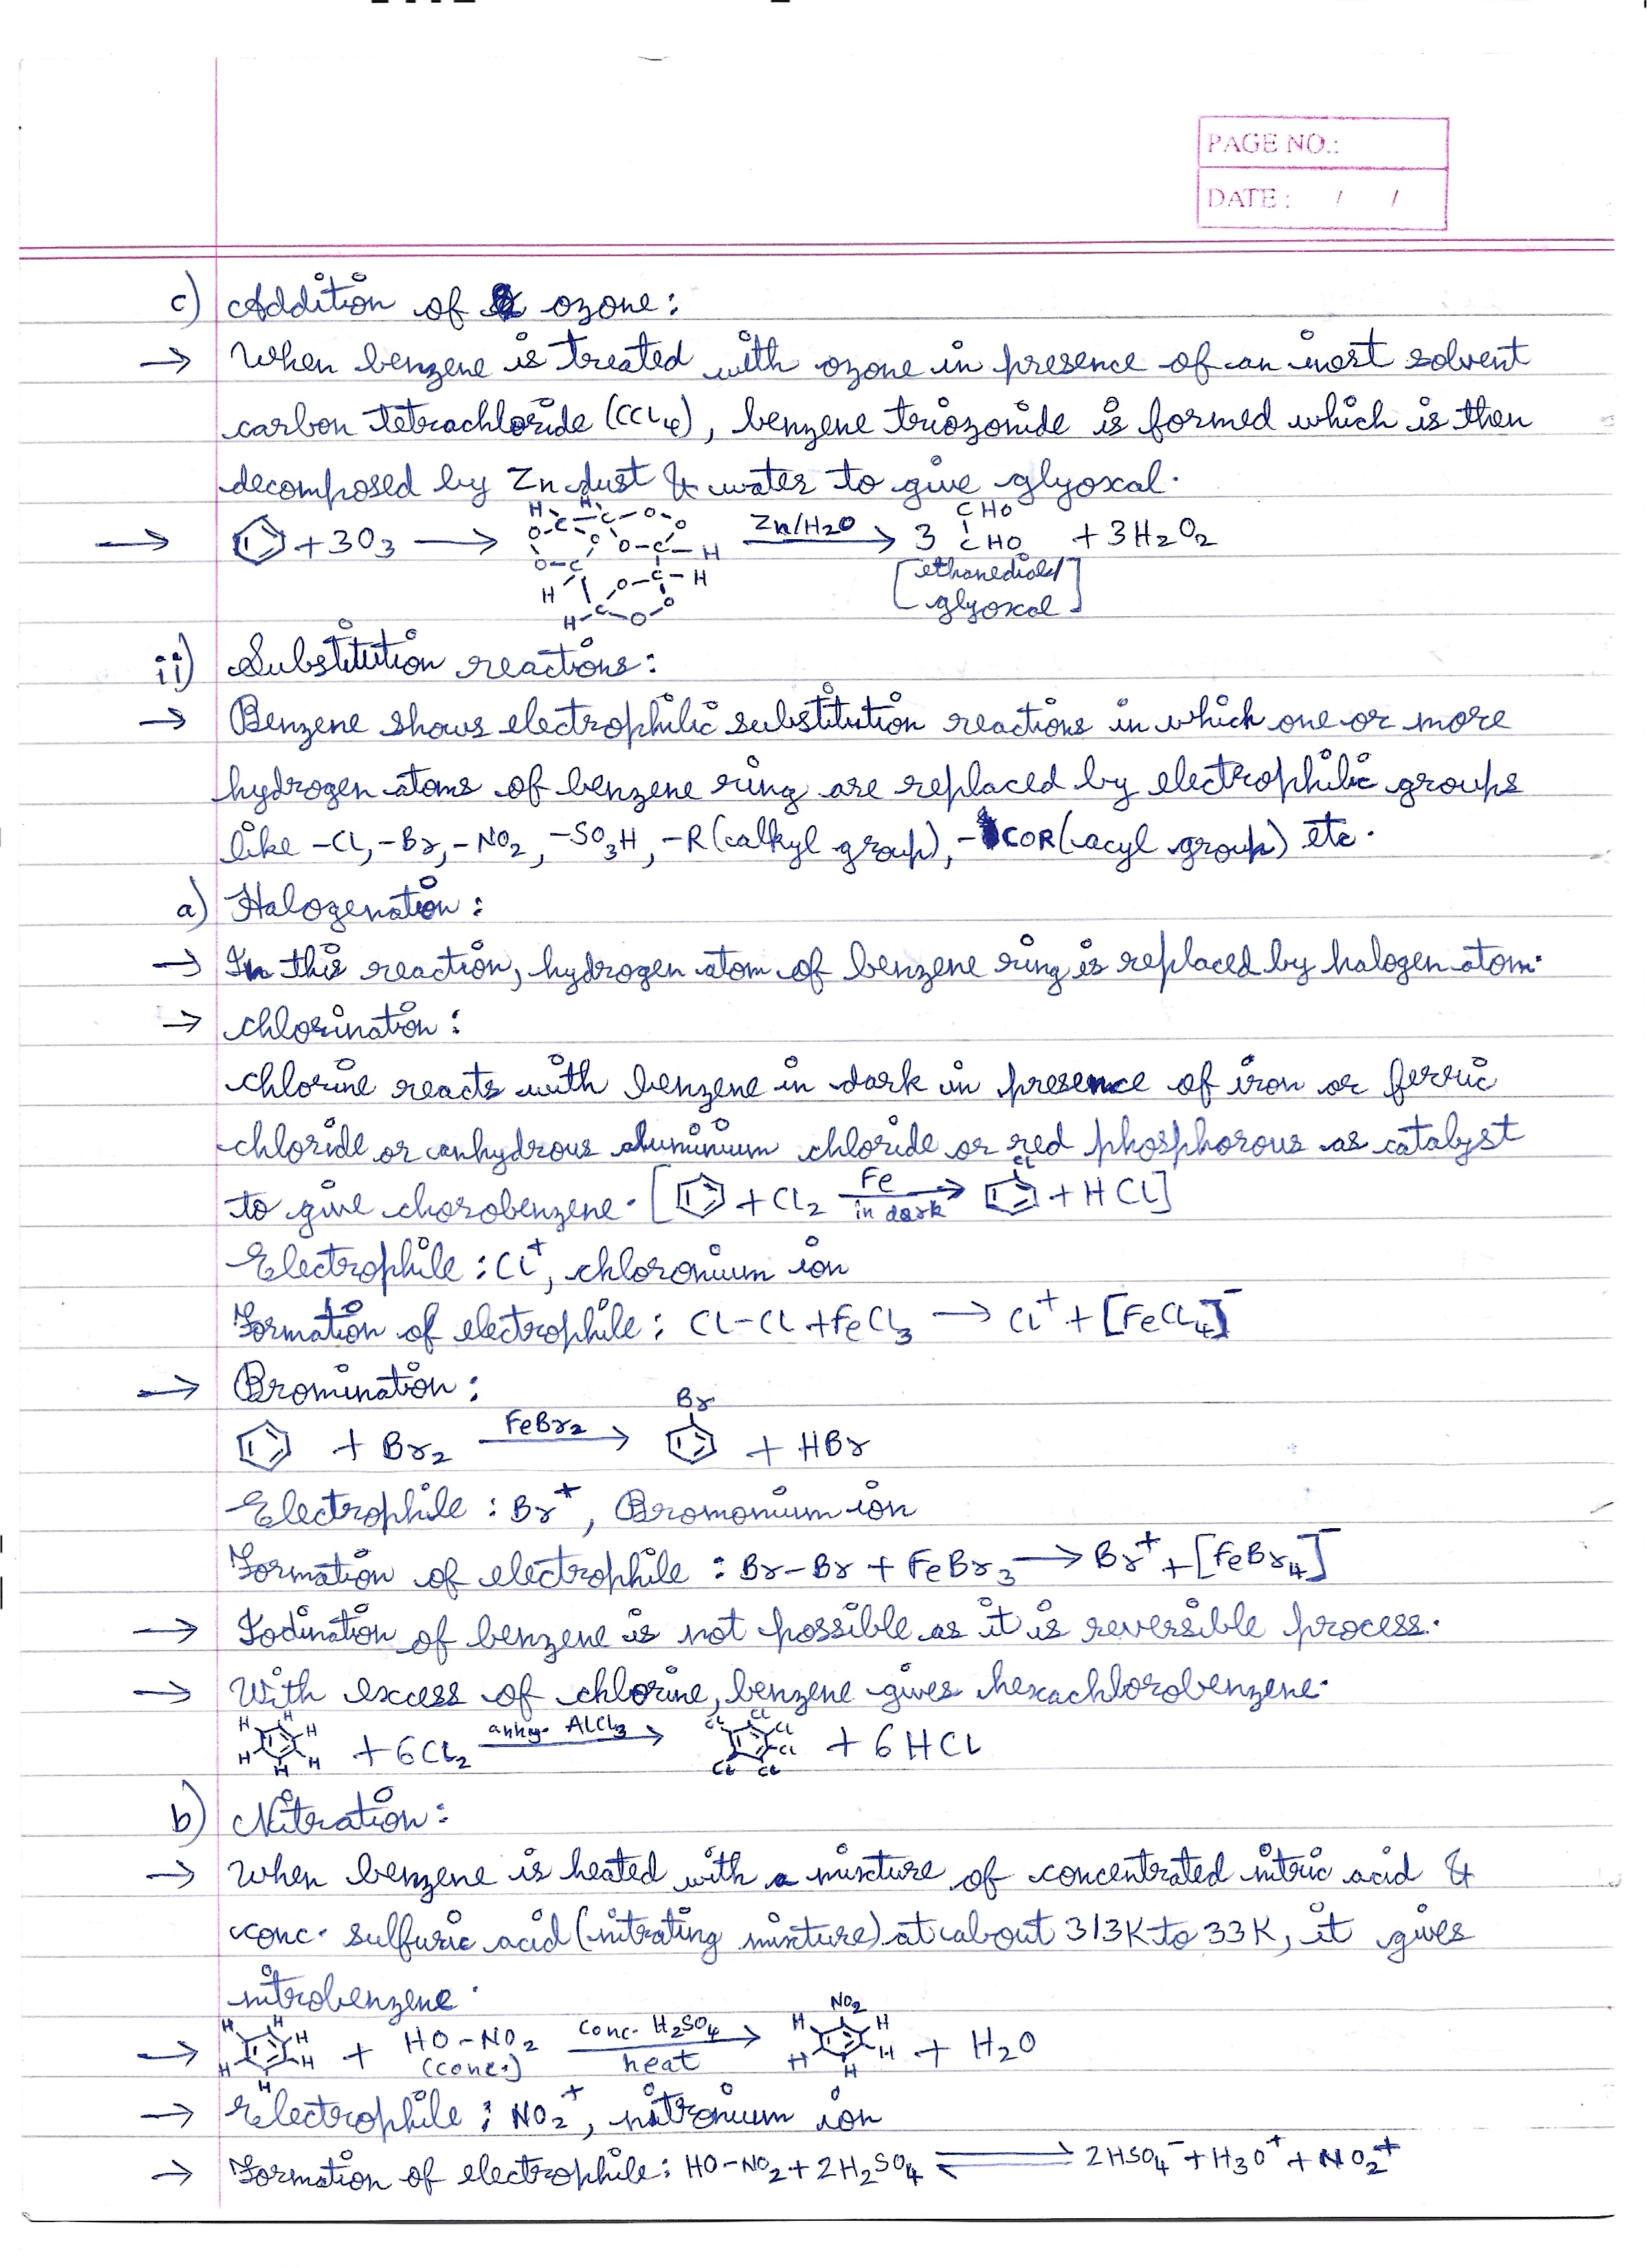 PAGE NO.:
DATE : / /
c) Addition of ozone:
→ When benzene is treated with ozone in presence of an inert solvent
carbon tetrachloride (CCl4), benzene triozonide is formed which is then
decomposed by Zn dust & water to give glyoxal.
→ + 3O3 → Zn/H2O → 3 CHO CHO + 3H2O2
[ethanedial/
glyoxal]
ii) Substitution reactions:
→ Benzene shows electrophilic substitution reactions in which one or more
hydrogen atoms of benzene ring are replaced by electrophilic groups
like -Cl, -Br, -NO2, -SO3H, -R (alkyl group), -COR (acyl group) etc.
a) Halogenation:
→ In this reaction, hydrogen atom of benzene ring is replaced by halogen atom.
→ chlorination:
chlorine reacts with benzene in dark in presence of iron or ferric
chloride or anhydrous aluminium chloride or red phosphorous as catalyst
to give chorobenzene. [ + Cl2 Fe in dark → Cl + HCl]
Electrophile : Cl+, chloronium ion
Formation of electrophile : Cl-Cl + FeCl3 → Cl+ + [FeCl4]-
→ Bromination:
+ Br2 FeBr2 → Br + HBr
Electrophile : Br+, Bromonium ion
Formation of electrophile : Br-Br + FeBr3 → Br+ + [FeBr4]-
→ Iodination of benzene is not possible as it is reversible process.
→ With excess of chlorine, benzene gives hexachlorobenzene.
H H H H H H + 6Cl2 anhy. AlCl3 → Cl Cl Cl Cl Cl Cl + 6HCl
b) Nitration:
→ When benzene is heated with a mixture of concentrated nitric acid &
conc. sulfuric acid (nitrating mixture) at about 313K to 33K, it gives
nitrobenzene.
→ H H H H H H + HO-NO2 (conc.) conc. H2SO4 heat → NO2 H H H H H + H2O
→ Electrophile : NO2+, nitronium ion
→ Formation of electrophile: HO-NO2 + 2H2SO4 ⇌ 2HSO4- + H3O+ + NO2+